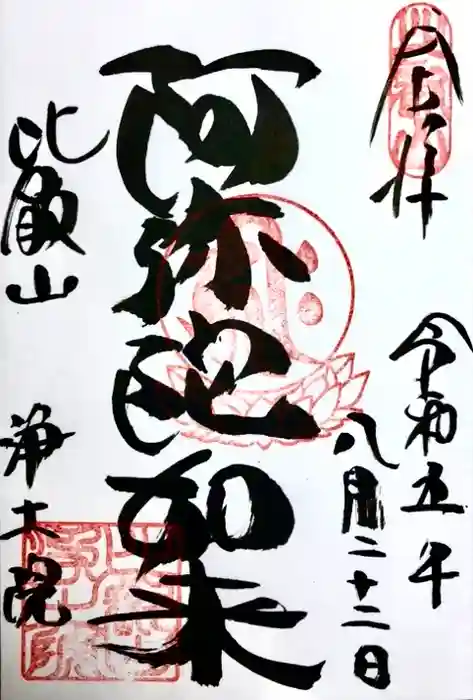 奉拝
令和五年
八月二十二日
阿弥陀如来
比叡山
浄土院